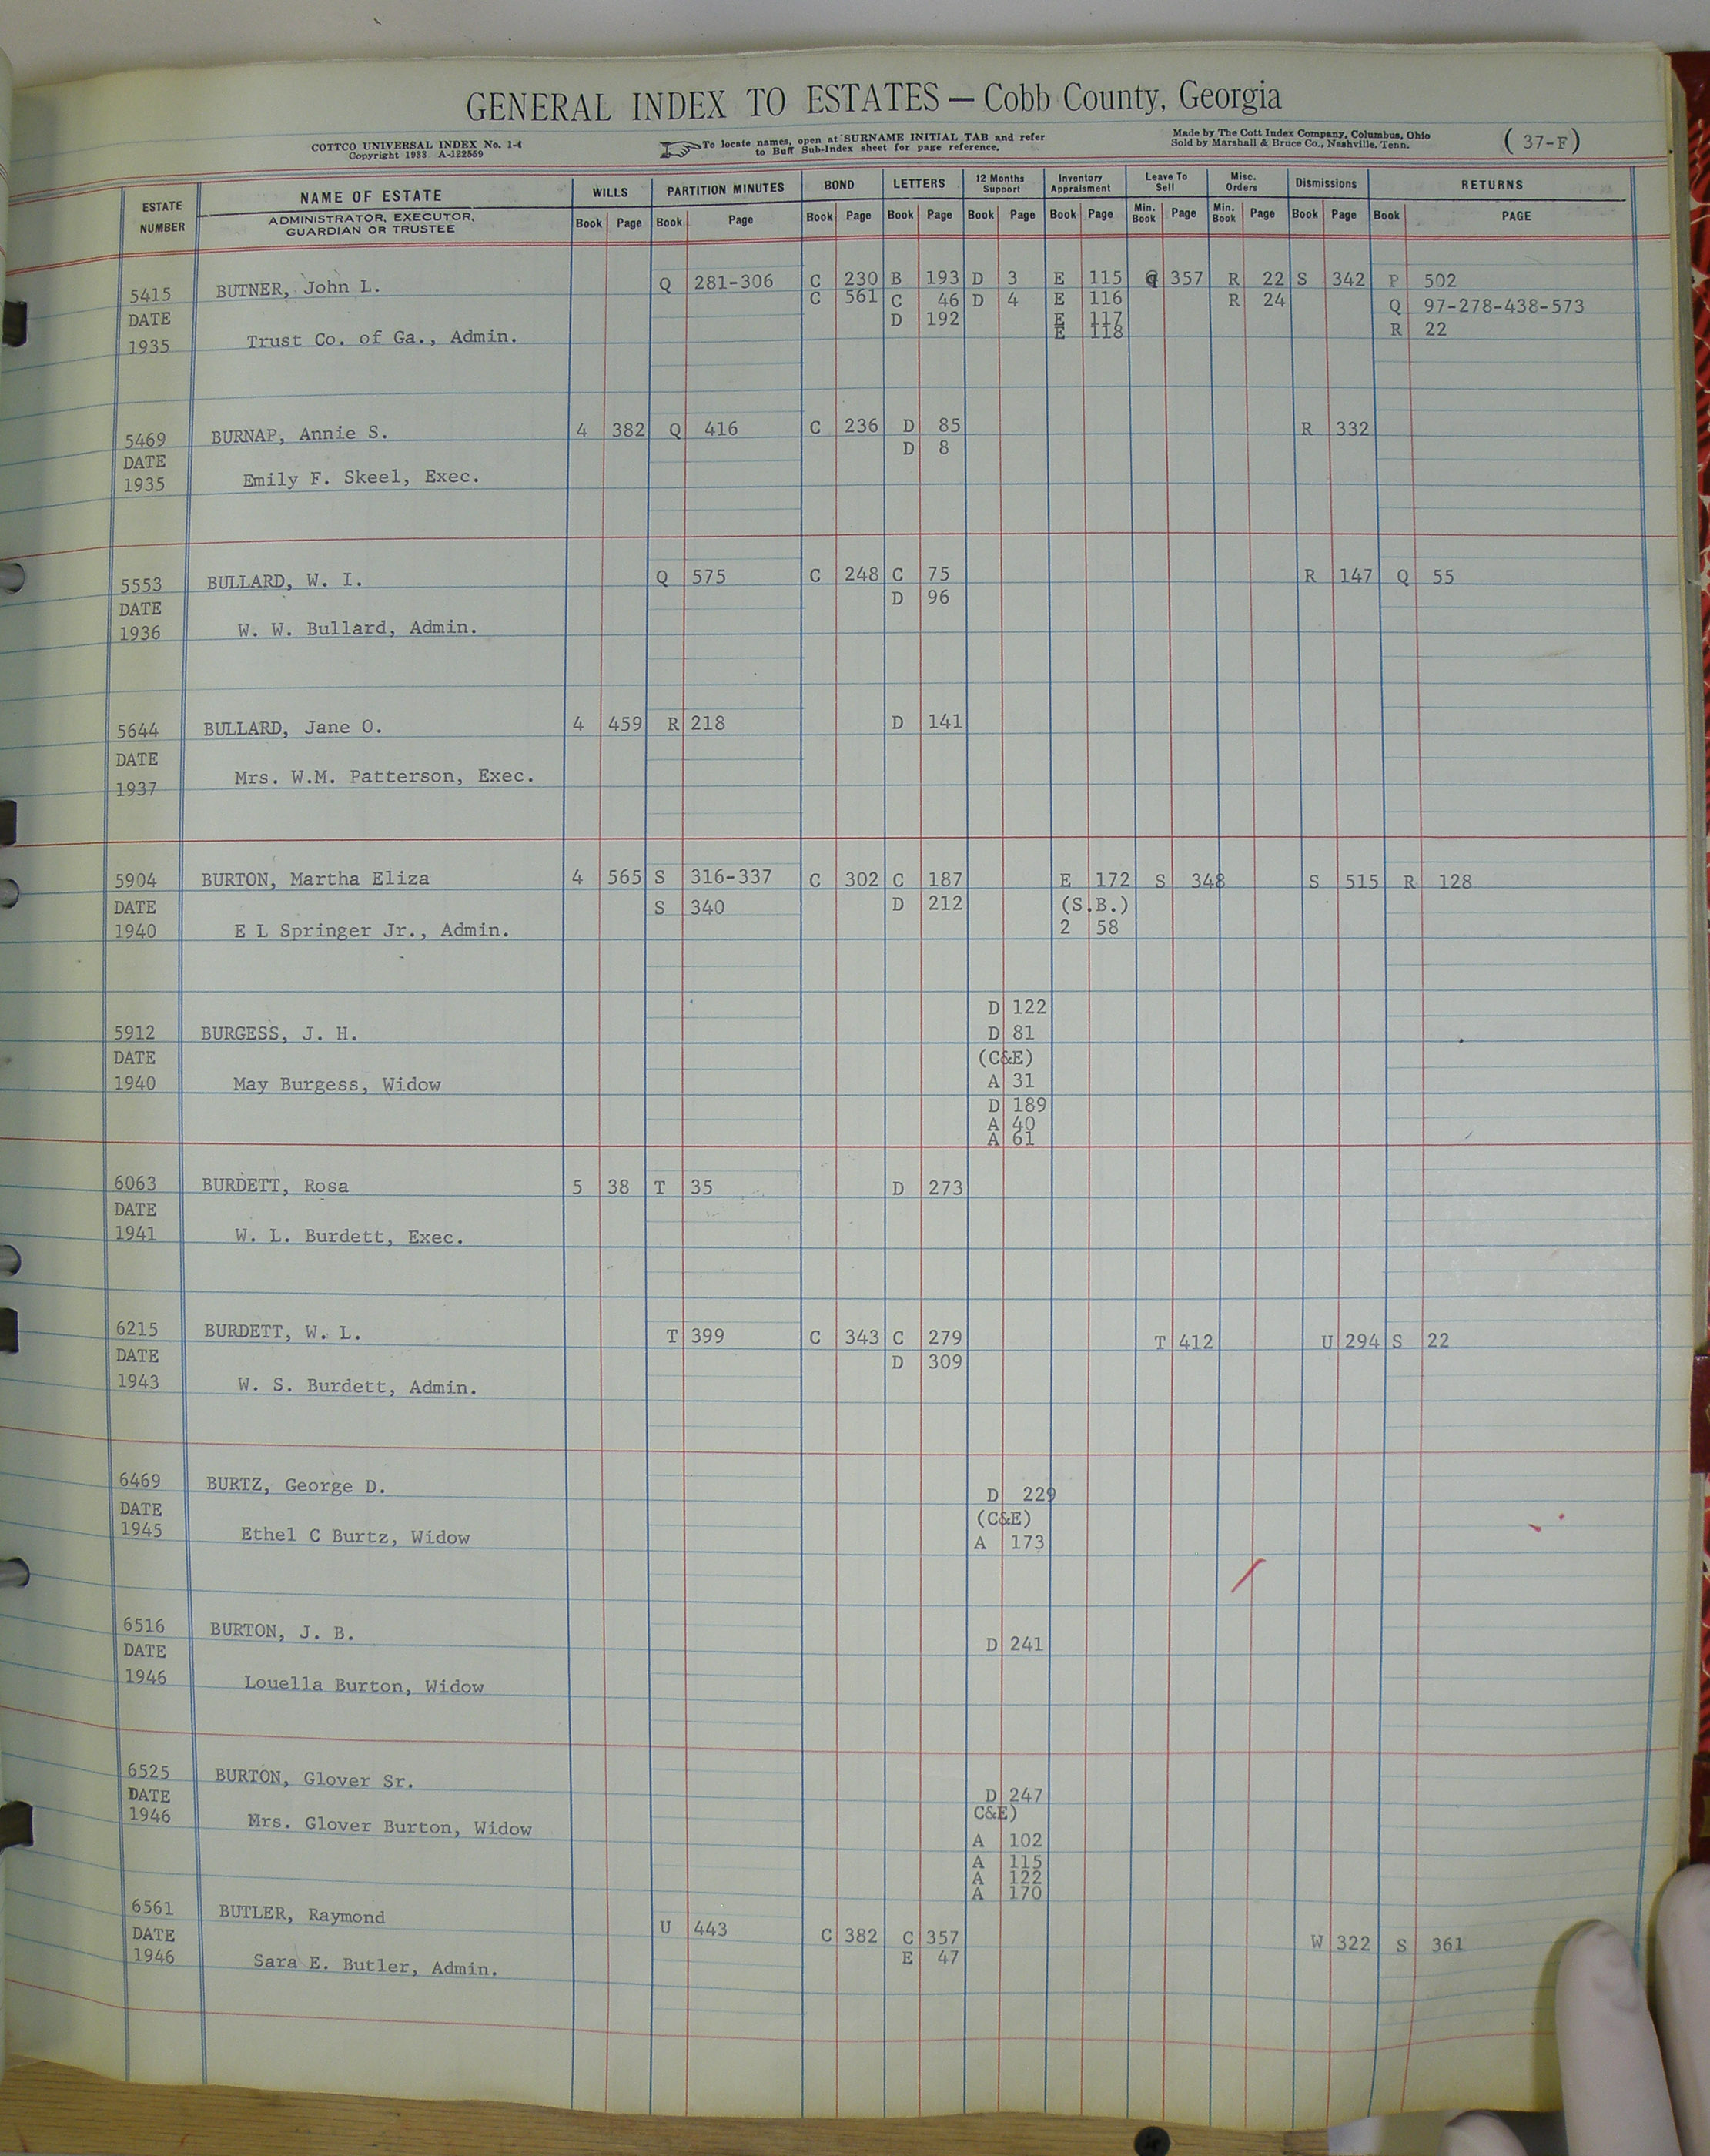 GENERAL INDEX TO ESTATES — Cobb County, Georgia
COTTCO UNIVERSAL INDEX No. 1-4
Copyright 1933 A-122559
To locate names, open at SURNAME INITIAL TAB and refer
to Buff Sub-Index sheet for page reference.
Made by The Cott Index Company, Columbus, Ohio
Sold by Marshall & Bruce Co., Nashville, Tenn.
( 37-F )
ESTATE NUMBER NAME OF ESTATE WILLS PARTITION MINUTES BOND LETTERS 12 Months Support Inventory Appraisment Leave To Sell Misc. Orders Dismissions RETURNS
ADMINISTRATOR, EXECUTOR, GUARDIAN OR TRUSTEE Book Page Book Page Book Page Book Page Book Page Book Page Min. Book Page Min. Book Page Book Page Book PAGE
5415 BUTNER, John L. Q 281-306 C 230 B 193 D 3 E 115 357 R 22 S 342 P 502
C 561 C 46 D 4 E 116 R 24 Q 97-278-438-573
DATE D 192 E 117 R 22
1935 Trust Co. of Ga., Admin. E 118
5469 BURNAP, Annie S. 4 382 Q 416 C 236 D 85 R 332
DATE D 8
1935 Emily F. Skeel, Exec.
5553 BULLARD, W. I. Q 575 C 248 C 75 R 147 Q 55
DATE D 96
1936 W. W. Bullard, Admin.
5644 BULLARD, Jane O. 4 459 R 218 D 141
DATE
1937 Mrs. W.M. Patterson, Exec.
5904 BURTON, Martha Eliza 4 565 S 316-337 C 302 C 187 E 172 S 348 S 515 R 128
DATE S 340 D 212 (S.B.)
1940 E L Springer Jr., Admin. 2 58
D 122
5912 BURGESS, J. H. D 81
DATE (C&E)
1940 May Burgess, Widow A 31
D 189
A 40
A 61
6063 BURDETT, Rosa 5 38 T 35 D 273
DATE
1941 W. L. Burdett, Exec.
6215 BURDETT, W. L. T 399 C 343 C 279 T 412 U 294 S 22
DATE D 309
1943 W. S. Burdett, Admin.
6469 BURTZ, George D. D 229
DATE (C&E)
1945 Ethel C Burtz, Widow A 173
6516 BURTON, J. B. D 241
DATE
1946 Louella Burton, Widow
6525 BURTON, Glover Sr. D 247
DATE C&E)
1946 Mrs. Glover Burton, Widow A 102
A 115
A 122
A 170
6561 BUTLER, Raymond U 443 C 382 C 357 W 322 S 361
DATE E 47
1946 Sara E. Butler, Admin.